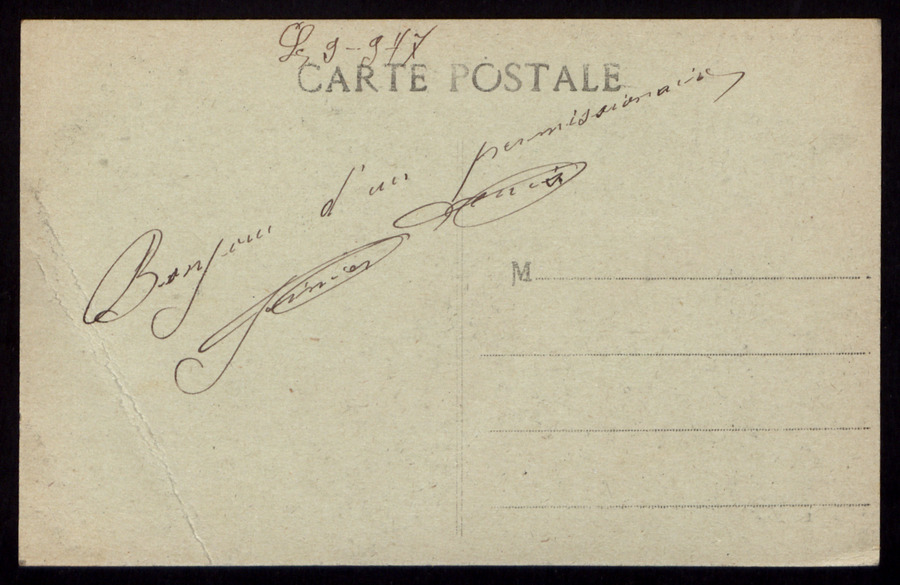 Le 9-9-17
CARTE POSTALE
Bonjour d'un permissionnaire
M